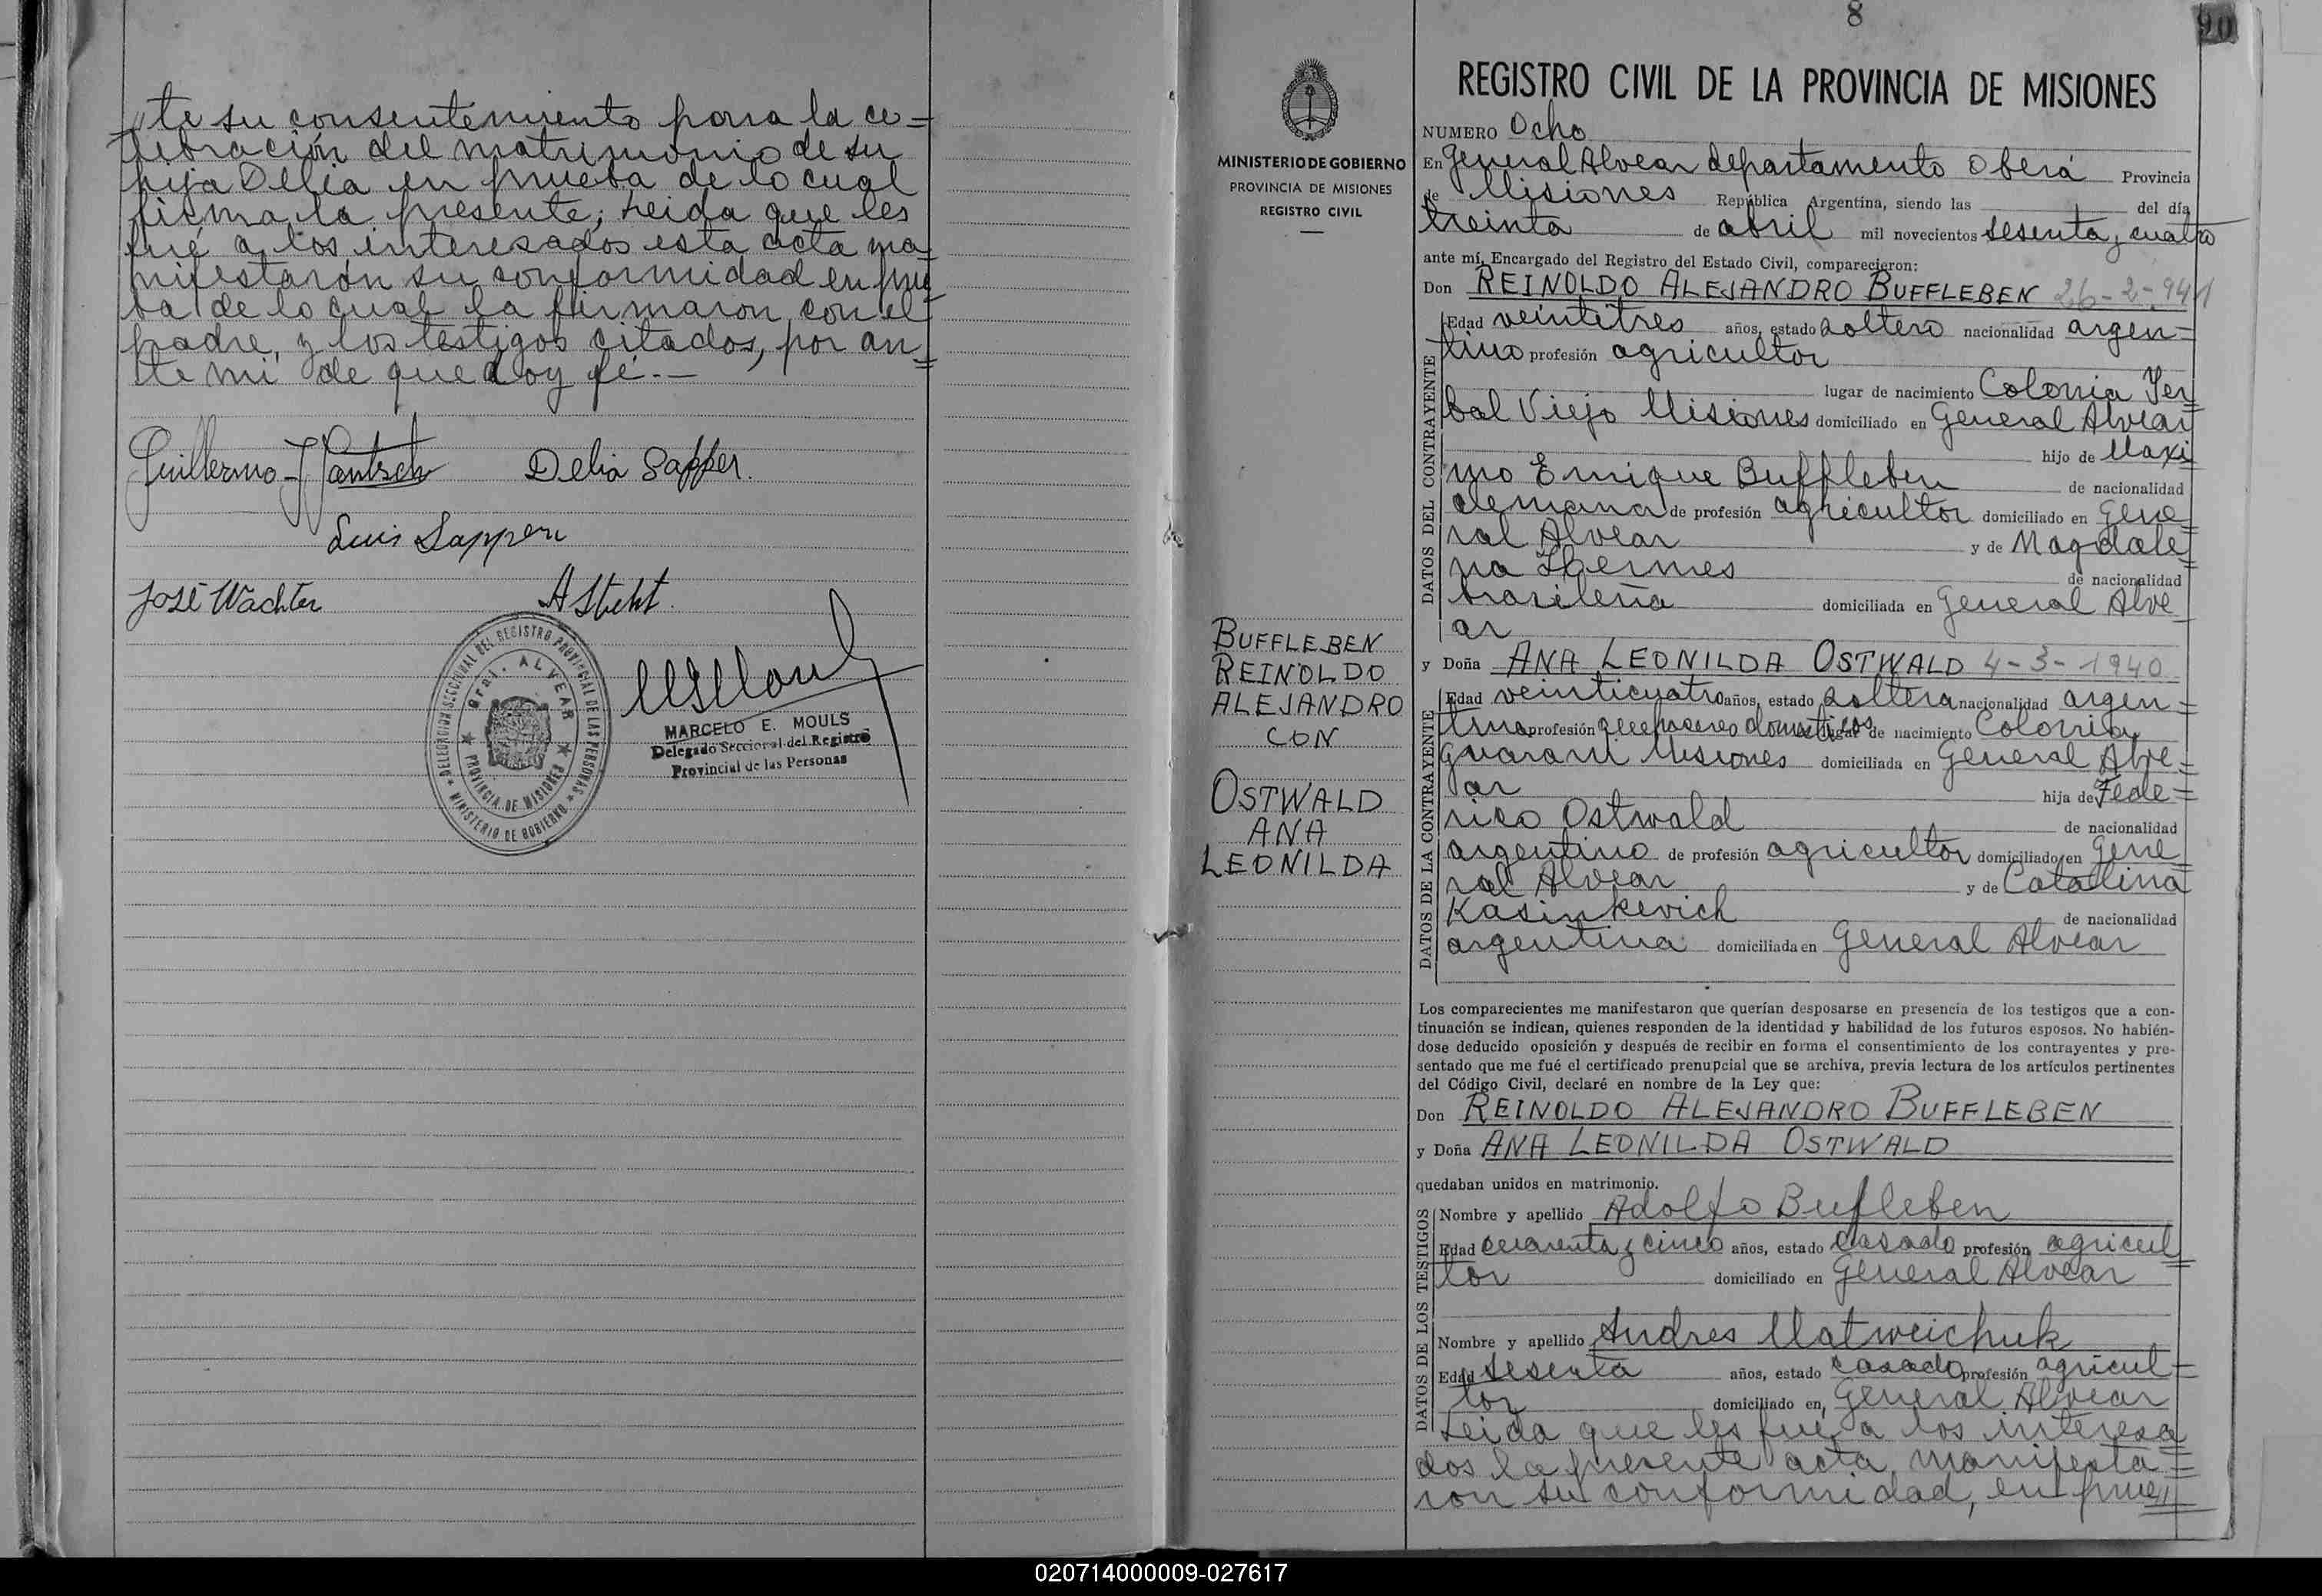 te su consentemiento para la ce=
lebración del matrimonio de su
hija Delia en prueba de lo cual
firma la presente; Leida que les
fué a los interesados esta acta ma
nifestarón su conformidad en prue
ba de lo cual la firmaron con el
padre, y los testigos citados, por an=
te mi de que doy fé.-
Guillermo Jantsch Delia Sapper.
Luis Sapper
José Wachter
DELEGACION SECCIONAL DEL REGISTRO PROVINCIAL DE LAS PERSONAS
Gral. ALVEAR
PROVINCIA DE MISIONES
MINISTERIO DE GOBIERNO
MARCELO E. MOULS
Delegado Seccional del Registro
Provincial de las Personas
8
90
MINISTERIO DE GOBIERNO
PROVINCIA DE MISIONES
REGISTRO CIVIL
BUFFLEBEN
REINOLDO
ALEJANDRO
CON
OSTWALD
ANA
LEONILDA
REGISTRO CIVIL DE LA PROVINCIA DE MISIONES
NUMERO Ocho
En General Alvear departamento Oberá Provincia
de Misiones República Argentina, siendo las del día
treinta de abril mil novecientos sesenta y cuatro
ante mí, Encargado del Registro del Estado Civil, comparecieron:
Don REINOLDO ALEJANDRO BUFFLEBEN 26-2-941
DATOS DEL CONTRAYENTE
Edad veintitres años, estado soltero nacionalidad argen=
tino profesión agricultor
lugar de nacimiento Colonia Yer
bal Viejo Misiones domiciliado en General Alvear
hijo de Maxi
mo Enrique Buffleben de nacionalidad
alemana de profesión agricultor domiciliado en Gene
ral Alvear y de Magdale
na Hermes de nacionalidad
brasileña domiciliada en General Alve
ar
y Doña ANA LEONILDA OSTWALD 4-3-1940
DATOS DE LA CONTRAYENTE
Edad veinticuatro años, estado soltera nacionalidad argen=
tina profesión quehaseres domesticos lugar de nacimiento Colonia
Guarani Misiones domiciliada en General Alve=
ar hija de Fede=
rico Ostwald de nacionalidad
argentino de profesión agricultor domiciliado en Gene
ral Alvear y de Catalina
Kasinkevich de nacionalidad
argentina domiciliada en General Alvear
Los comparecientes me manifestaron que querían desposarse en presencia de los testigos que a con-
tinuación se indican, quienes responden de la identidad y habilidad de los futuros esposos. No habién-
dose deducido oposición y después de recibir en forma el consentimiento de los contrayentes y pre-
sentado que me fué el certificado prenupcial que se archiva, previa lectura de los artículos pertinentes
del Código Civil, declaré en nombre de la Ley que:
Don REINOLDO ALEJANDRO BUFFLEBEN
y Doña ANA LEONILDA OSTWALD
quedaban unidos en matrimonio.
DATOS DE LOS TESTIGOS
Nombre y apellido Adolfo Bufleben
Edad cuarenta y cinco años, estado casado profesión agricul
tor domiciliado en General Alvear
Nombre y apellido Andres Matweichuk
Edad sesenta años, estado casado profesión agricul=
tor domiciliado en General Alvear
Leida que les fué a los interesa
dos la presente acta, manifesta=
ron su conformidad, en prue
020714000009-027617